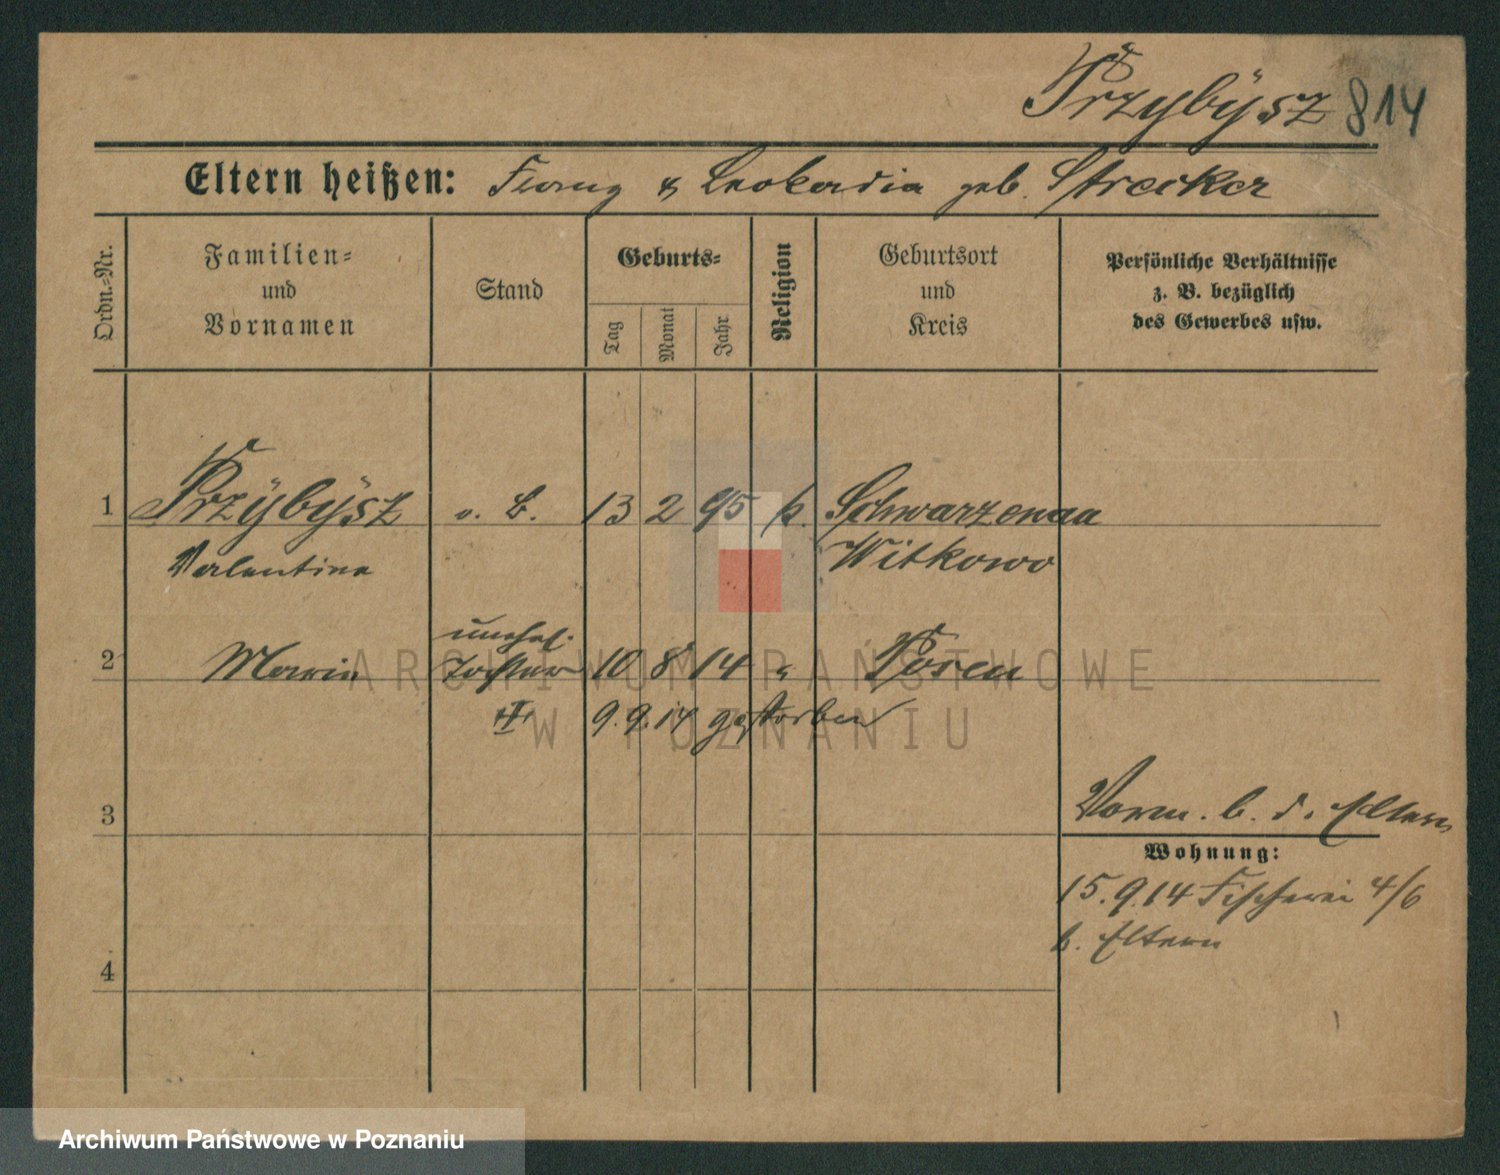 Przybÿsz 814
Eltern heißen: Franz & Leokadia geb. Strecker
Ordn.-Nr.
Familien- und Vornamen
Stand
Geburts-
Tag
Monat
Jahr
Religion
Geburtsort und Kreis
Persönliche Verhältnisse z. B. bezüglich des Gewerbes usw.
1 Przÿbÿsz o. B. 13 2 95 k. Schwarzenau
Valentina Witkowo
unehel.
2 Maria Tochter 10 8 14 " Posen
9. 9. 14 gestorben
3
Vorm. b. d. Eltern
Wohnung:
15. 9. 14 Fischerei 4/6
b. Eltern
4
ARCHIWUM PAŃSTWOWE
W POZNANIU
Archiwum Państwowe w Poznaniu